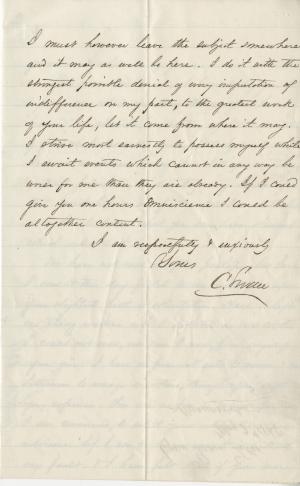 I must however leave the subject somewhere
and it may as well be here. I do it with the
strongest possible denial of every imputation of
indifference on my part, to the greatest work
of your life, let it come from where it may.
I strive most earnestly to possess myself while
I await events which cannot in any way be
worse for me than they are already. If I could
give you one hours Omniscience I could be
altogether content.
I am respectfully & anxiously
Yours
C.